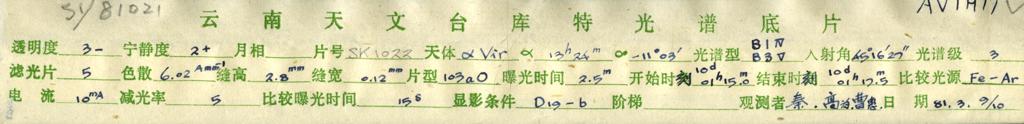 SY/81021
云南天文台库特光谱底片
透明度 3- 宁静度 2+ 月相 片号 SK1022 天体 α Vir α 13h24m δ -11°03′ 光谱型 B1Ⅳ B3Ⅴ 入射角 45°16′27″ 光谱级 3
滤光片 5 色散 6.02 Åmm⁻¹ 缝高 2.8mm 缝宽 0.12mm 片型 103aO 曝光时间 2.5m 开始时刻 10d01h15.0m 结束时刻 10d01h17.5m 比较光源 Fe-Ar
电流 10mA 减光率 5 比较曝光时间 15s 显影条件 D19-6 阶梯 观测者 秦. 日期 81.3.9/10